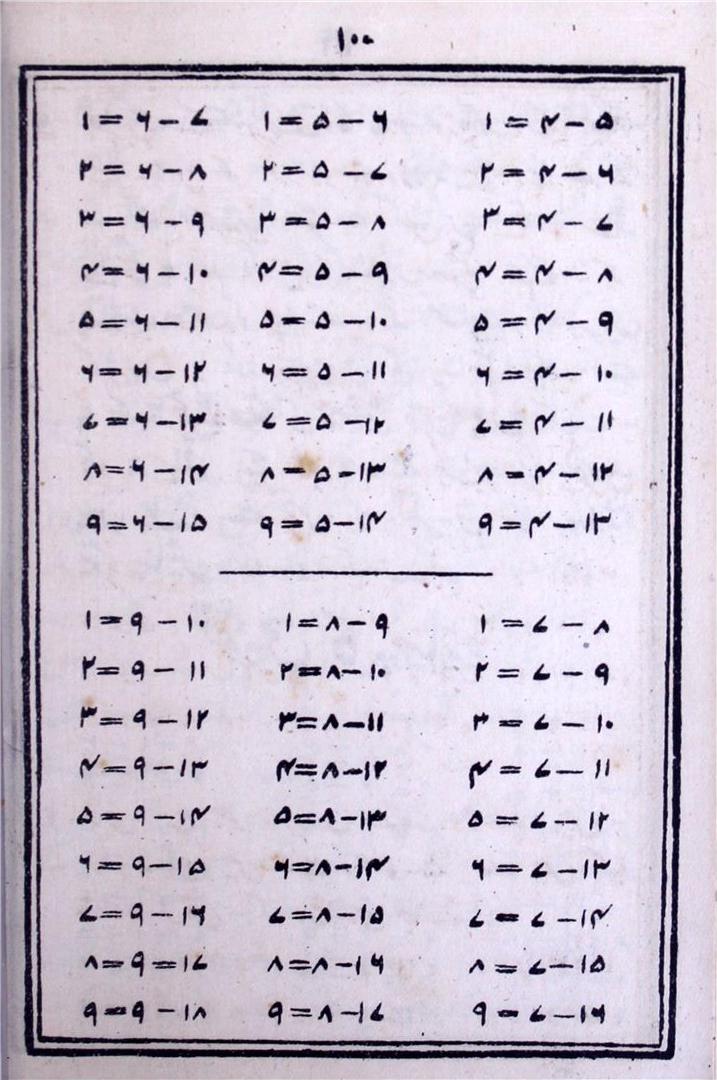 ۵ - ۴ = ۱ ۶ - ۵ = ۱ ۷ - ۶ = ۱
۶ - ۴ = ۲ ۷ - ۵ = ۲ ۸ - ۶ = ۲
۷ - ۴ = ۳ ۸ - ۵ = ۳ ۹ - ۶ = ۳
۸ - ۴ = ۴ ۹ - ۵ = ۴ ۱۰ - ۶ = ۴
۹ - ۴ = ۵ ۱۰ - ۵ = ۵ ۱۱ - ۶ = ۵
۱۰ - ۴ = ۶ ۱۱ - ۵ = ۶ ۱۲ - ۶ = ۶
۱۱ - ۴ = ۷ ۱۲ - ۵ = ۷ ۱۳ - ۶ = ۷
۱۲ - ۴ = ۸ ۱۳ - ۵ = ۸ ۱۴ - ۶ = ۸
۱۳ - ۴ = ۹ ۱۴ - ۵ = ۹ ۱۵ - ۶ = ۹
۸ - ۷ = ۱ ۹ - ۸ = ۱ ۱۰ - ۹ = ۱
۹ - ۷ = ۲ ۱۰ - ۸ = ۲ ۱۱ - ۹ = ۲
۱۰ - ۷ = ۳ ۱۱ - ۸ = ۳ ۱۲ - ۹ = ۳
۱۱ - ۷ = ۴ ۱۲ - ۸ = ۴ ۱۳ - ۹ = ۴
۱۲ - ۷ = ۵ ۱۳ - ۸ = ۵ ۱۴ - ۹ = ۵
۱۳ - ۷ = ۶ ۱۴ - ۸ = ۶ ۱۵ - ۹ = ۶
۱۴ - ۷ = ۷ ۱۵ - ۸ = ۷ ۱۶ - ۹ = ۷
۱۵ - ۷ = ۸ ۱۶ - ۸ = ۸ ۱۷ = ۹ = ۸
۱۶ - ۷ = ۹ ۱۷ - ۸ = ۹ ۱۸ - ۹ = ۹